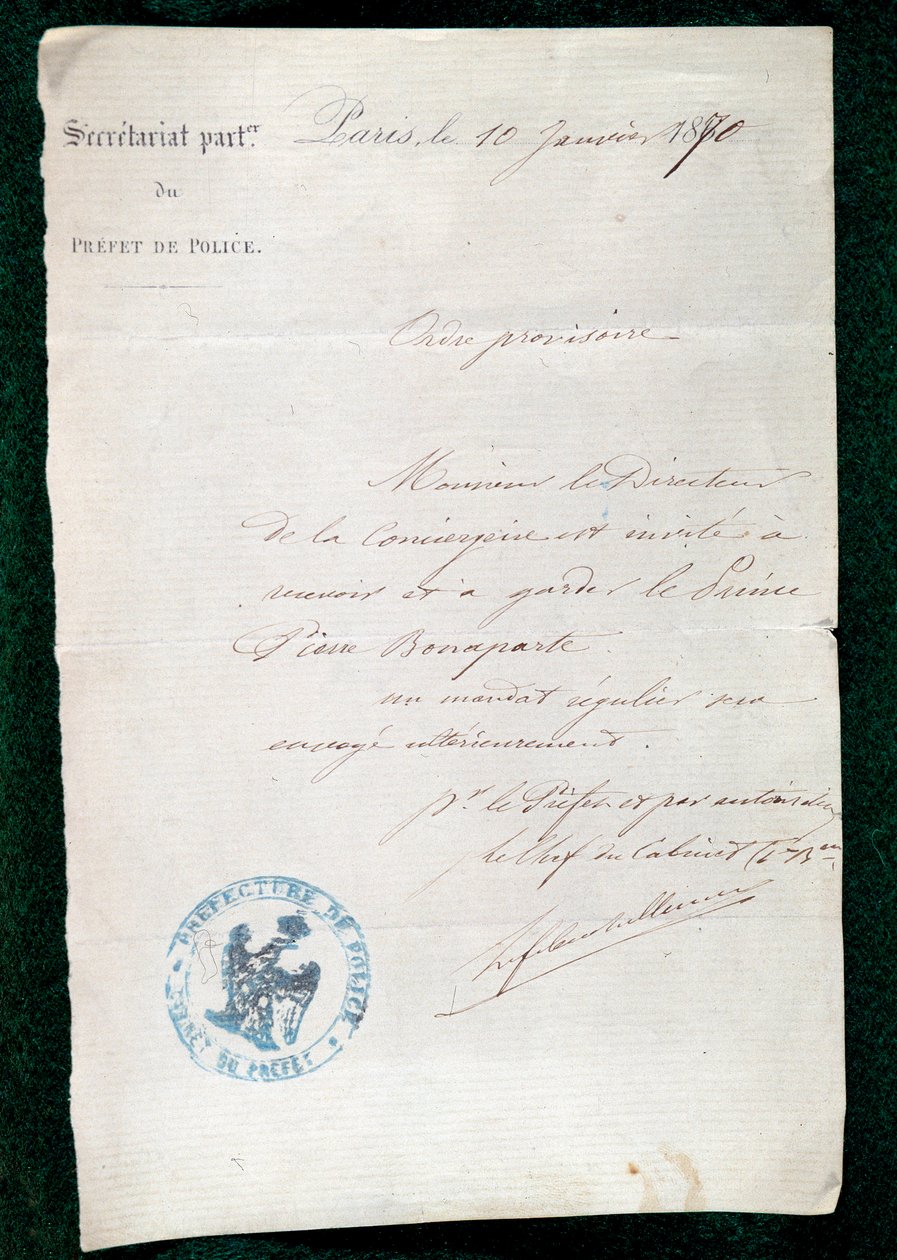 Secrétariat part.er
du
PRÉFET DE POLICE.
Paris, le 10 Janvier 1870
Ordre provisoire
Monsieur le Directeur
de la Conciergerie est invité à
recevoir et à garder le Prince
Pierre Bonaparte.
un mandat régulier sera
envoyé ultérieurement.
pr. le Préfet et par autorisation
Le Chef du Cabinet
PRÉFECTURE DE POLICE
CABINET DU PRÉFET